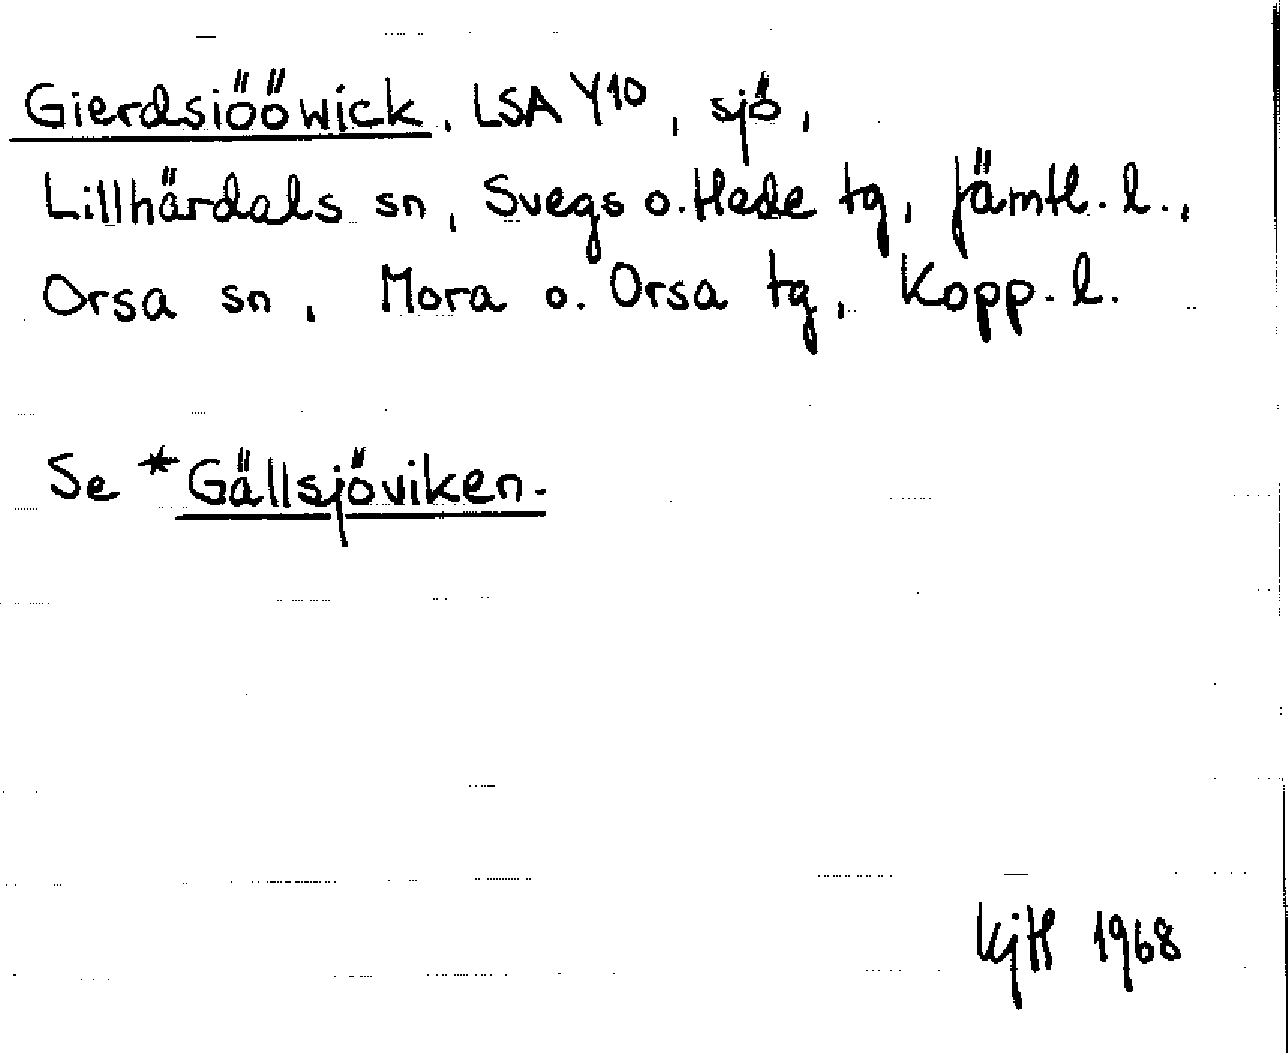 Gierdsiööwick, LSA Y10, sjö,
Lillhärdals sn, Svegs o. Hede tg, Jämtl. l.,
Orsa sn, Mora o. Orsa tg, Kopp. l.
Se *Gällsjöviken.
KjH 1968